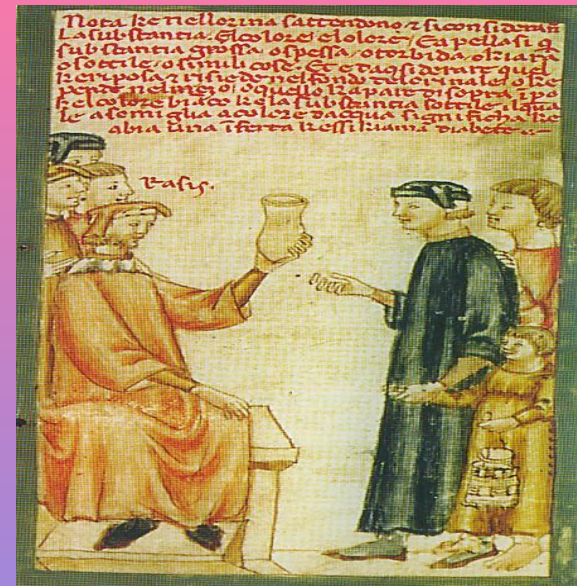 Nota ke nellorina sattendono & siconsideran
La substantia. Elcolore elolore. Eapellasi q̄
substantia grossa ospessa, otorbida. okiara
osottile, osimili cose. Et
ke riposa & risiede nelfondo delorinale oke
pende nelmeço. oquello kapart di sopra.
kelcolore biāco kela substantia sottile.
le asomiglia acolore dacqua significha ke
abia una īferta kessi kiama diabete
rasis.